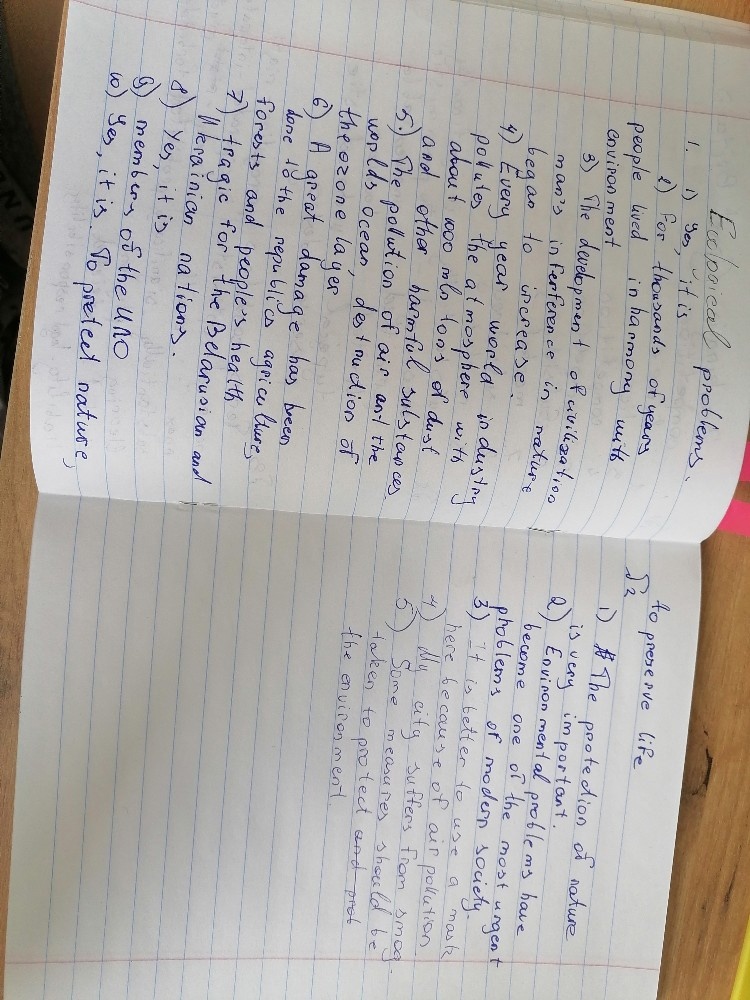 Ecological problems.
1. 1) Yes, it is
2) For thousands of years
people lived in harmony with
environment
3) The development of civilization
man's inference in nature
began to increase.
4) Every year world industry
pollutes the atmosphere with
about 1000 mln tons of dust
and other harmful substances
5.) The pollution of air ant the
worlds ocean, destruction of
the ozone layer
6) A great damage has been
done to the republics agriculture,
forests and people's health
7) tragic for the Belarusian and
Ukrainian nations.
8) Yes, it is
9) members of the UNO
10) Yes, it is. To protect nature,
to preserve life
2
1) The protection of nature
is very important.
2) Environmental problems have
become one of the most urgent
problems of modern society.
3) it is better to use a mask
here because of air pollution
4) My city suffers from smog.
5) Some measures should be
taken to protect and prot
the environment.